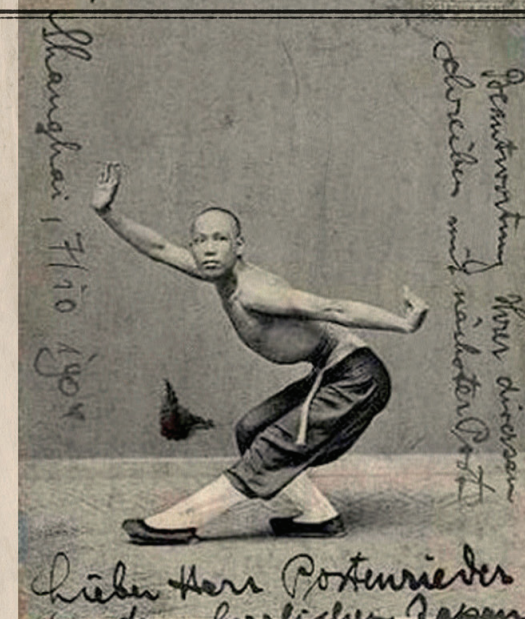 Shanghai, 7/10 1904
Beantwortung Ihrer diversen
schreiben mit nächster Post
Lieber Herr Postenrieder
herzlichen Japan